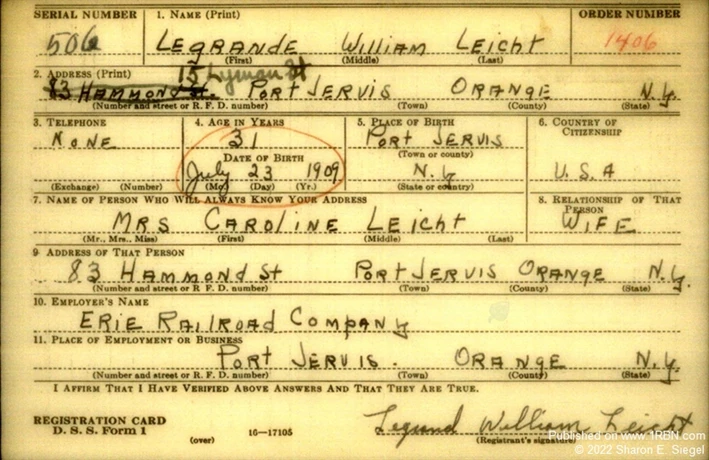 SERIAL NUMBER 1. NAME (Print) ORDER NUMBER
506 LEGRANDE WILLIAM LEICHT 1406
(First) (Middle) (Last)
2. ADDRESS (Print) 15 Lyman St
83 HAMMOND St. PORT JERVIS ORANGE N.Y.
(Number and street or R. F. D. number) (Town) (County) (State)
3. TELEPHONE 4. AGE IN YEARS 5. PLACE OF BIRTH 6. COUNTRY OF CITIZENSHIP
NONE 31 PORT JERVIS
DATE OF BIRTH (Town or county)
July 23 1909 N.Y. U.S.A
(Exchange) (Number) (Mo.) (Day) (Yr.) (State or country)
7. NAME OF PERSON WHO WILL ALWAYS KNOW YOUR ADDRESS 8. RELATIONSHIP OF THAT PERSON
MRS CAROLINE LEICHT WIFE
(Mr., Mrs., Miss) (First) (Middle) (Last)
9. ADDRESS OF THAT PERSON
83 HAMMOND St PORT JERVIS ORANGE N.Y.
(Number and street or R. F. D. number) (Town) (County) (State)
10. EMPLOYER'S NAME
ERIE RAILROAD COMPANY
11. PLACE OF EMPLOYMENT OR BUSINESS
PORT JERVIS. ORANGE N.Y.
(Number and street or R. F. D. number) (Town) (County) (State)
I AFFIRM THAT I HAVE VERIFIED ABOVE ANSWERS AND THAT THEY ARE TRUE.
REGISTRATION CARD
D. S. S. Form 1 (over) 16—17105
Legrand William Leicht
(Registrant's signature)
Published on www.1RBN.com
© 2022 Sharon E. Siegel